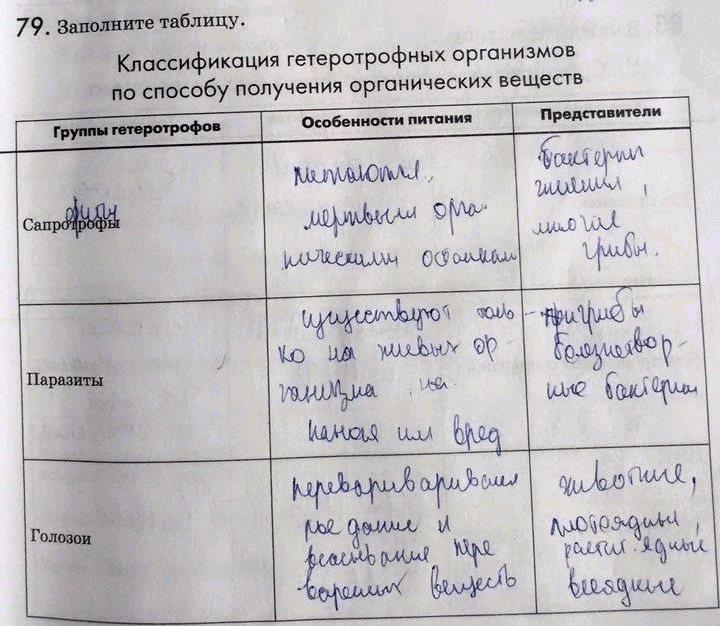 79. Заполните таблицу.
Классификация гетеротрофных организмов
по способу получения органических веществ
Группы гетеротрофов
Особенности питания
Представители
Сапротрофы
питаются,
мертвыми орга-
ническими остатками
бактерии
гниения,
многие
грибы.
Паразиты
существуют толь-
ко на живых ор-
ганизма на-
нанося им вред
грибы
болезнетвор-
ные бактерии
Голозои
поедание и
всасывание пере
варенных веществ
животные,
плотоядные
растит. ядные
всеядные